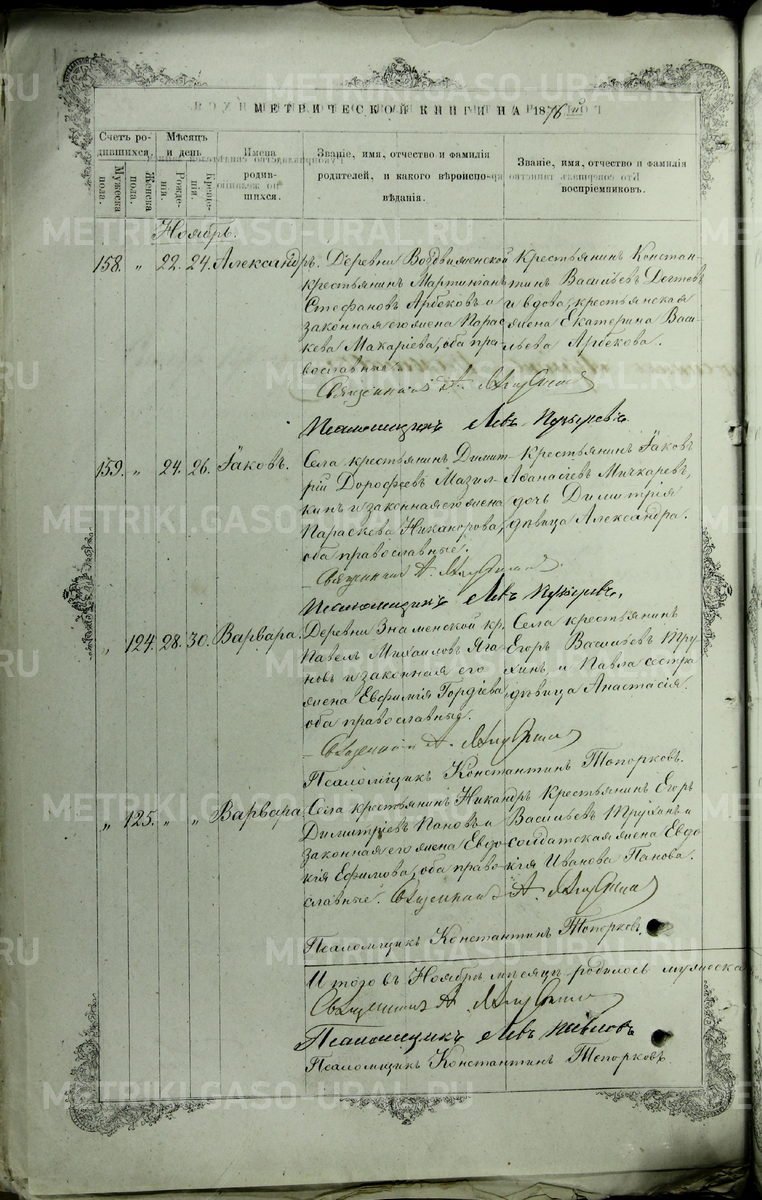 МЕТРИЧЕСКОЙ КНИГИ НА 1876 ГОДЪ
Счетъ родившихся.
Мужеска пола.
Женска пола.
Мѣсяцъ и день
Рожденія.
Крещенія.
Имена родившихся.
Званіе, имя, отчество и фамилія родителей, и какого вѣроисповѣданія.
Званіе, имя, отчество и фамилія воспріемниковъ.
Ноябрь.
158. " 22. 24. Александръ.
Деревни Воздвиженской
крестьянинъ Мартиніанъ
Стефановъ Арбековъ и
законная его жена Парас
кева Макаріева, оба пра-
вославные.
Крестьянинъ Констан-
тинъ Васильевъ Дегтевъ
и вдова, крестьянская
жена Екатерина Васи-
льева Арбекова.
Священникъ А.
Псаломщикъ Левъ
159. " 24. 26. Іаковъ.
Села крестьянинъ Димит-
рій Дорофеевъ Мазил-
кинъ и законная его жена
Параскева Никанорова,
оба православные.
Крестьянинъ Іаковъ
Аѳанасіевъ Мичкаревъ,
дочь Димитрія
дѣвица Александра.
Священникъ А.
Псаломщикъ Левъ
" 124. 28. 30. Варвара.
Деревни Знаменской кр.
Павелъ Михаиловъ Яга
новъ и законная его
жена Евфимія Гордіева,
оба православныя.
Села крестьянинъ
Егоръ Васильевъ Тру
хинъ, и Павла сестра
дѣвица Анастасія.
Священникъ А.
Псаломщикъ Константинъ Топорковъ.
" 125. " " Варвара.
Села крестьянинъ Никандръ
Димитріевъ Пановъ и
законная его жена Евдо
кія Ефимова, оба право-
славные.
Крестьянинъ Егоръ
Васильевъ Трухинъ и
солдатская жена Евдо
кія Иванова Панова.
Священникъ А.
Псаломщикъ Константинъ Топорковъ.
Итого въ Ноябрѣ мѣсяцѣ родилось мужеска
Священникъ А.
Псаломщикъ Левъ
Псаломщикъ Константинъ Топорковъ
METRIKI.GASO-URAL.RU